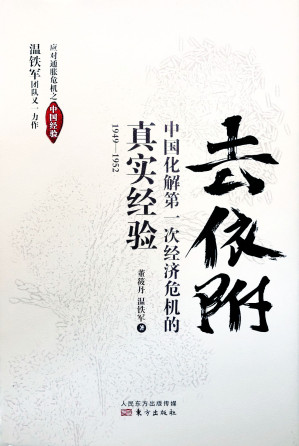 去依附
中国化解第一次经济危机的
真实经验
1949—1952
董筱丹 温铁军 著
应对通胀危机之中国经验
温铁军团队又一力作
人民东方出版传媒
東方出版社